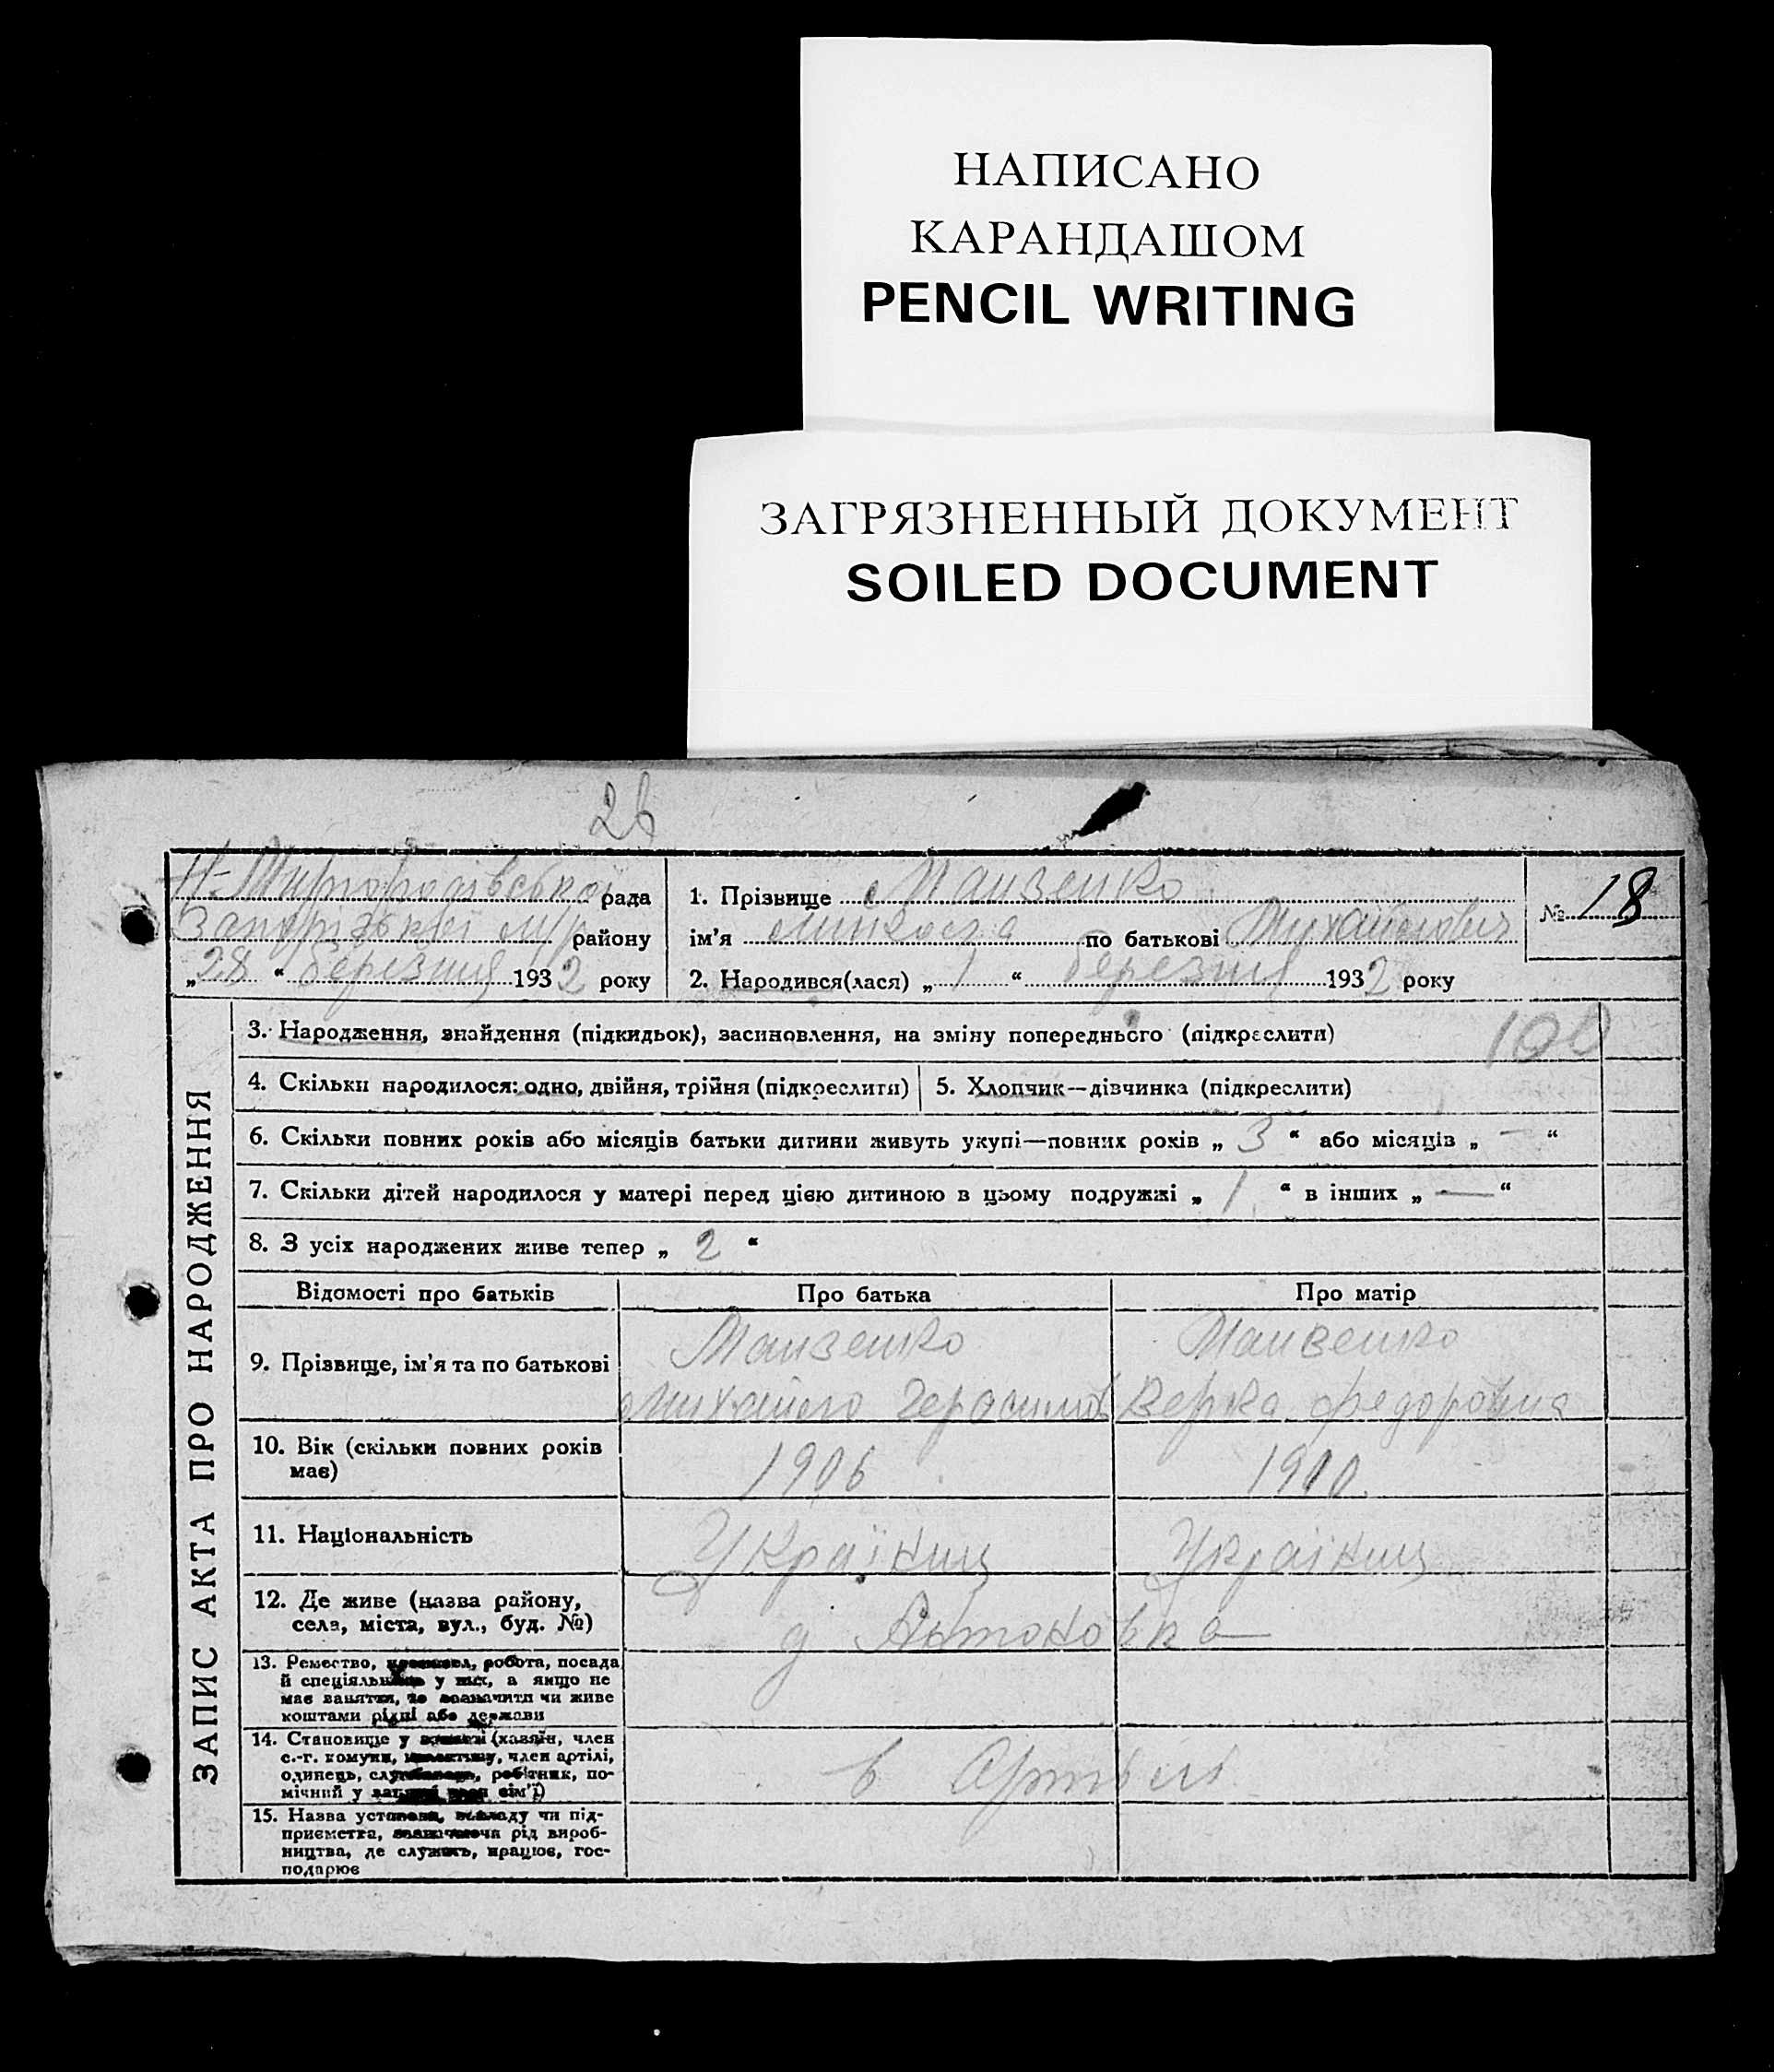 НАПИСАНО
КАРАНДАШОМ
PENCIL WRITING
ЗАГРЯЗНЕННЫЙ ДОКУМЕНТ
SOILED DOCUMENT
26
Н-Миргородівської рада
Запорізької м/р району
„28“ березня 1932 року
1. Прізвище Манзенко
ім’я Микола по батькові Михайлович
2. Народився(лася) „1“ березня 1932 року
№ 18
ЗАПИС АКТА ПРО НАРОДЖЕННЯ
3. Народження, знайдення (підкидьок), засиновлення, на зміну попереднього (підкреслити) 100
4. Скільки народилося: одно, двійня, трійня (підкреслити) 5. Хлопчик—дівчинка (підкреслити)
6. Скільки повних років або місяців батьки дитини живуть укупі—повних років „3“ або місяців „—“
7. Скільки дітей народилося у матері перед цією дитиною в цьому подружжі „1“ в інших „—“
8. З усіх народжених живе тепер „2“
Відомості про батьків Про батька Про матір
9. Прізвище, ім’я та по батькові
Манзенко Манзенко
Михайло Герасимов Верка Федоровна
10. Вік (скільки повних років
має)
1906 1910
11. Національність
Українц Українц
12. Де живе (назва району,
села, міста, вул., буд. №)
д Антоновка
13. Ремество, робота, посада
й спеціяльн у них, а якщо не
має заняття, то зазначити чи живе
коштами рідні або держави
14. Становище у (хазяїн, член
с.-г. комуни, член артілі,
одинець, робітник, по-
мічний у сім’ї)
в Артелі
15. Назва установи, закладу чи під-
приємства, зазначаючи рід вироб-
ництва, де служить, працює, гос-
подарює